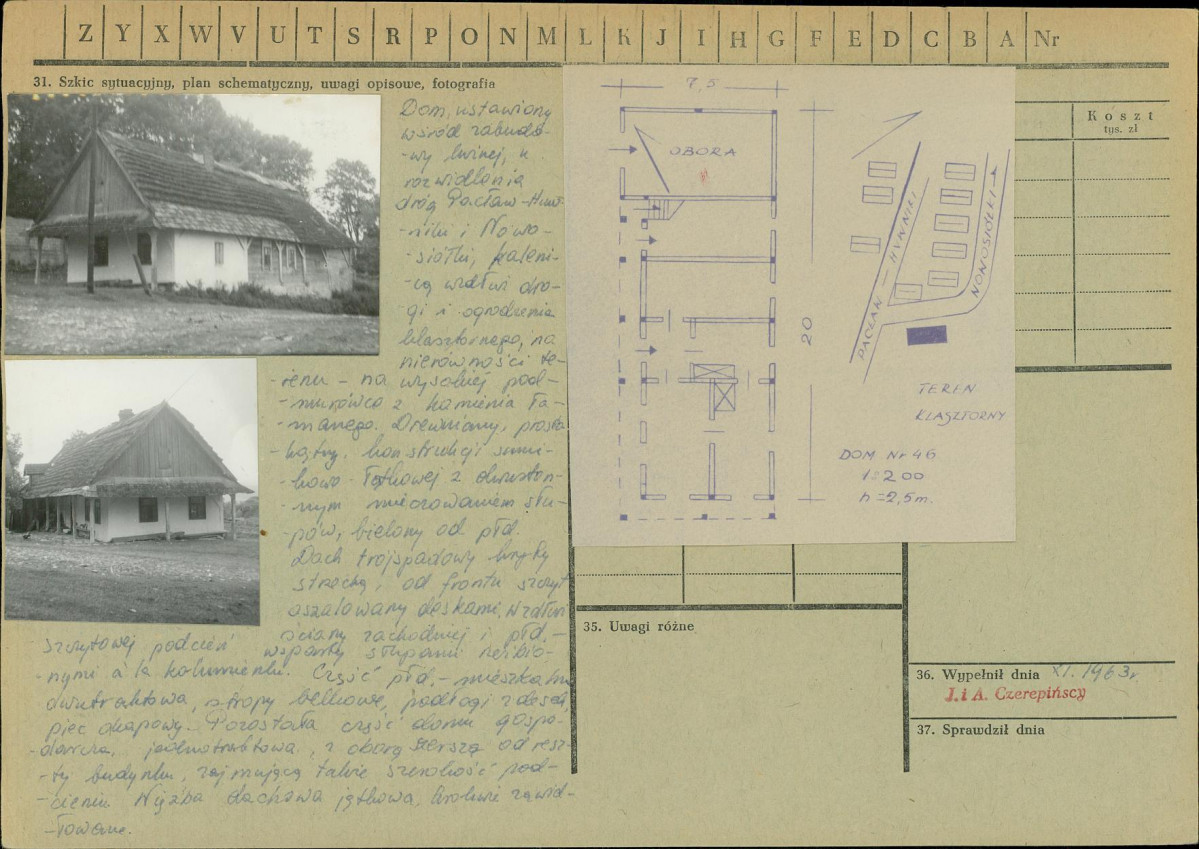 Z Y X W V U T S R P O N M L K J I H G F E D C B A Nr
31. Szkic sytuacyjny, plan schematyczny, uwagi opisowe, fotografia
Dom, ustawiony
wśród zabudo-
-wy luźnej, u
rozwidlenia
dróg Pacław-Huw-
-niki i Nowo-
-siółki, kaleni-
-cą wzdłuż dro-
-gi i ogrodzenia
klasztornego, na
nierówności te-
-renu - na wysokiej pod-
-murówce z kamienia ła-
-manego. Drewniany, prosto-
-kątny, konstrukcji sumi-
-kowo-łątkowej z
-nym mieczowaniem słu-
-pów, bielony od płd.
Dach trójspadowy kryty
strzechą, od frontu szczyt
oszalowany deskami. Wzdłuż
ściany zachodniej i płd.-
szczytowej podcień wsparty słupami rzeźbio-
-nymi a'la kolumienki. Część płd.- mieszkalna
dwutraktowa, stropy belkowe, podłogi z desek,
piec okapowy. Pozostała część domu gospo-
-darcza, jednotraktowa, z oborą szerszą od resz-
-ty budynku, zajmującą także szerokość pod-
-cienia. Więźba dachowa jętkowa, krokwie zawid-
-łowane.
7,5
OBORA
20
PACŁAW - HUWNIKI
NOWOSIÓŁKI
TEREN
KLASZTORNY
DOM Nr 46
1:200
h=2,5m.
Koszt
tys. zł
35. Uwagi różne
36. Wypełnił dnia XI. 1963r.
J. i A. Czerepińscy
37. Sprawdził dnia